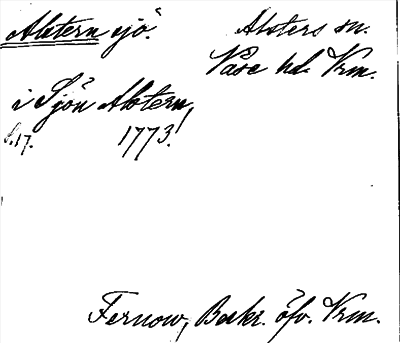 Alstern sjö. Alsters sn.
Väse hd. Vrm.
i Sjön Alstern,
s. 17. 1773.
Fernow, Beskr. öfv. Vrm.